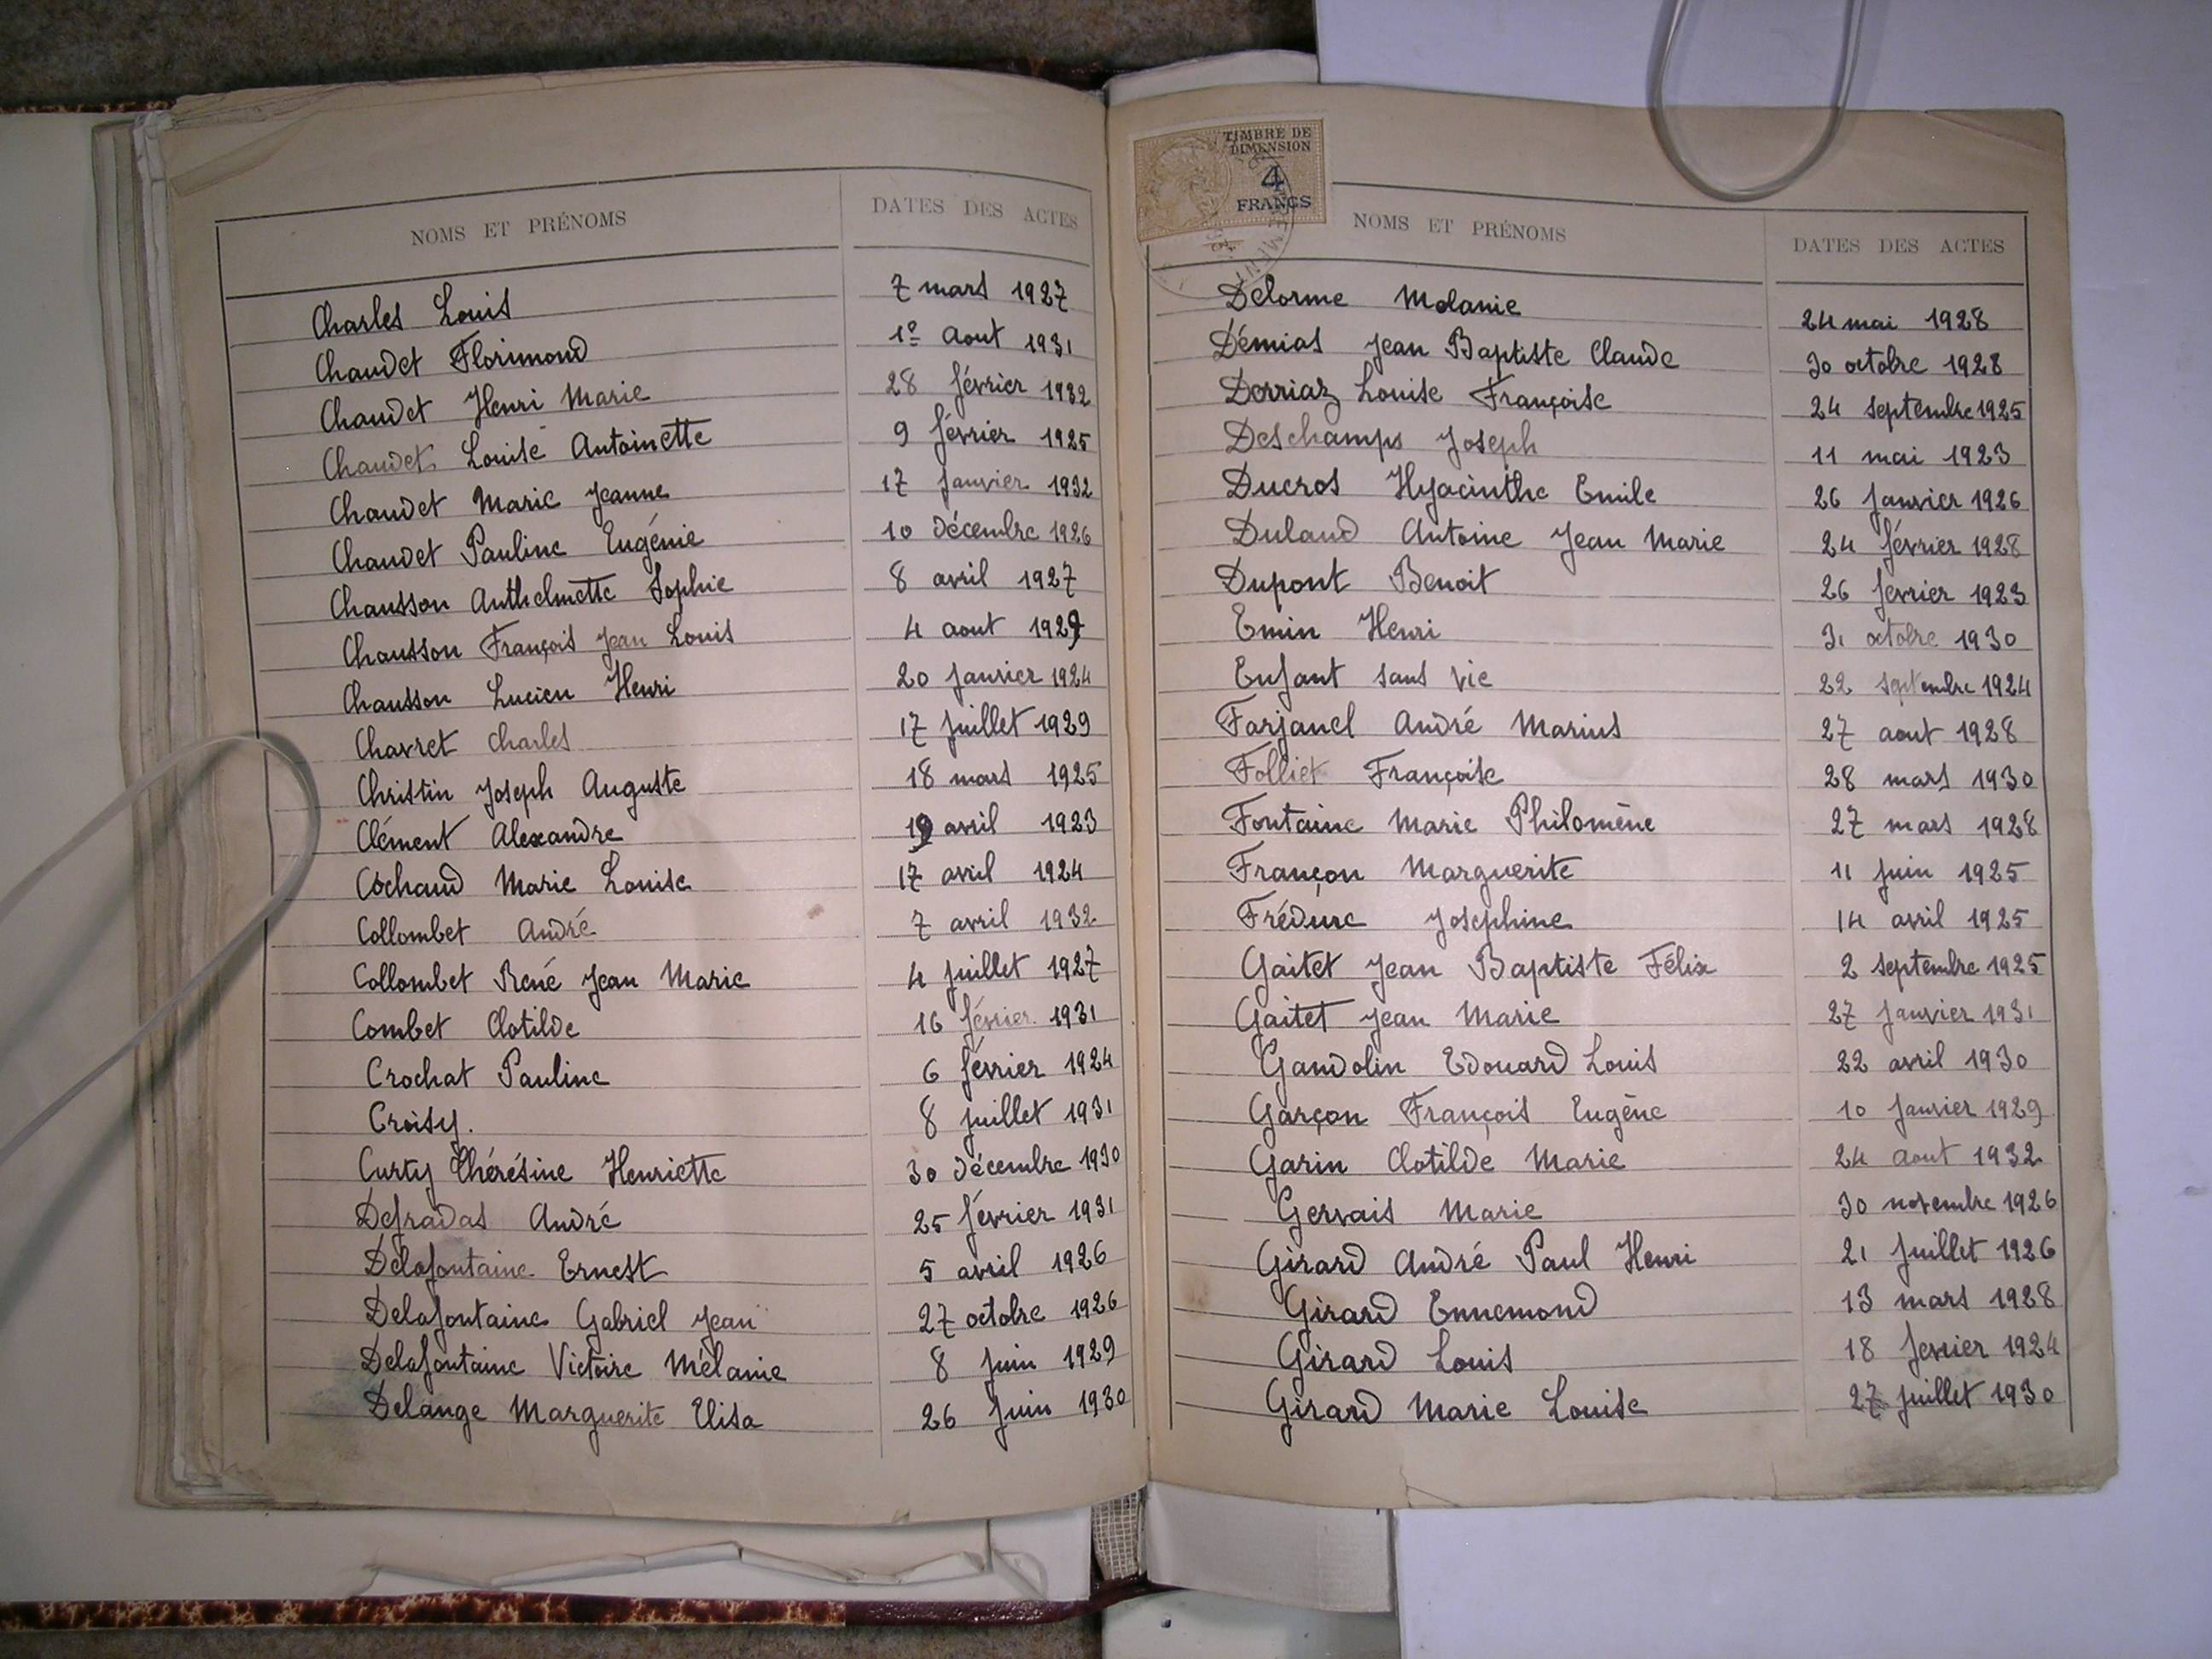 NOMS ET PRÉNOMS DATES DES ACTES
Charles Louis 7 mars 1927
Chaudet Florimond 1º Aout 1931
Chaudet Henri Marie 28 février 1932
Chaudet Louise Antoinette 9 février 1925
Chaudet Marie Jeanne 17 Janvier 1932
Chaudet Pauline Eugénie 10 décembre 1926
Chausson Anthelmette Sophie 8 avril 1927
Chausson François Jean Louis 4 aout 1929
Chausson Lucien Henri 20 Janvier 1924
Chavret Charles 17 Juillet 1929
Christin Joseph Auguste 18 mars 1925
Clément Alexandre 19 avril 1923
Cochaud Marie Louise 17 avril 1924
Collombet André 7 avril 1932
Collombet René Jean Marie 4 Juillet 1927
Combet Clotilde 16 février 1931
Crochat Pauline 6 février 1924
Croisy. 8 Juillet 1931
Curty Thérésine Henriette 30 décembre 1930
Defradas André 25 février 1931
Delafontaine Ernest 5 avril 1926
Delafontaine Gabriel Jean 27 octobre 1926
Delafontaine Victoire Mélanie 8 Juin 1929
Delange Marguerite Elisa 26 Juin 1930
TIMBRE DE
DIMENSION
4
FRANCS
NOMS ET PRÉNOMS DATES DES ACTES
Delorme Melanie 24 mai 1928
Démias Jean Baptiste Claude 30 octobre 1928
Derriaz Louise Françoise 24 septembre 1925
Deschamps Joseph 11 mai 1923
Ducros Hyacinthe Emile 26 Janvier 1926
Dulaud Antoine Jean Marie 24 février 1928
Dupont Benoit 26 fevrier 1923
Emin Henri 31 octobre 1930
Enfant sans vie 22 septembre 1924
Farjanel André Marius 27 aout 1928
Folliet Françoise 28 mars 1930
Fontaine Marie Philomène 27 mars 1928
Françon Marguerite 11 Juin 1925
Frédure Josephine 14 avril 1925
Gaitet Jean Baptiste Félix 2 septembre 1925
Gaitet Jean Marie 27 Janvier 1931
Gandolin Edouard Louis 22 avril 1930
Garçon François Eugène 10 Janvier 1929
Garin Clotilde Marie 24 aout 1932
Gervais Marie 30 novembre 1926
Girard André Paul Henri 21 Juillet 1926
Girard Ennemond 13 mars 1928
Girard Louis 18 fevrier 1924
Girard Marie Louise 27 Juillet 1930